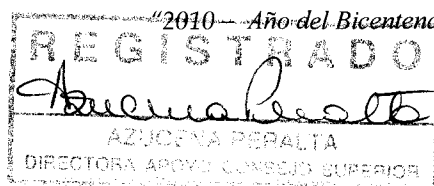 “2010 – Año del Bicentena
REGISTRADO
Azucena Peralta
AZUCENA PERALTA
DIRECTORA APOYO CONSEJO SUPERIOR